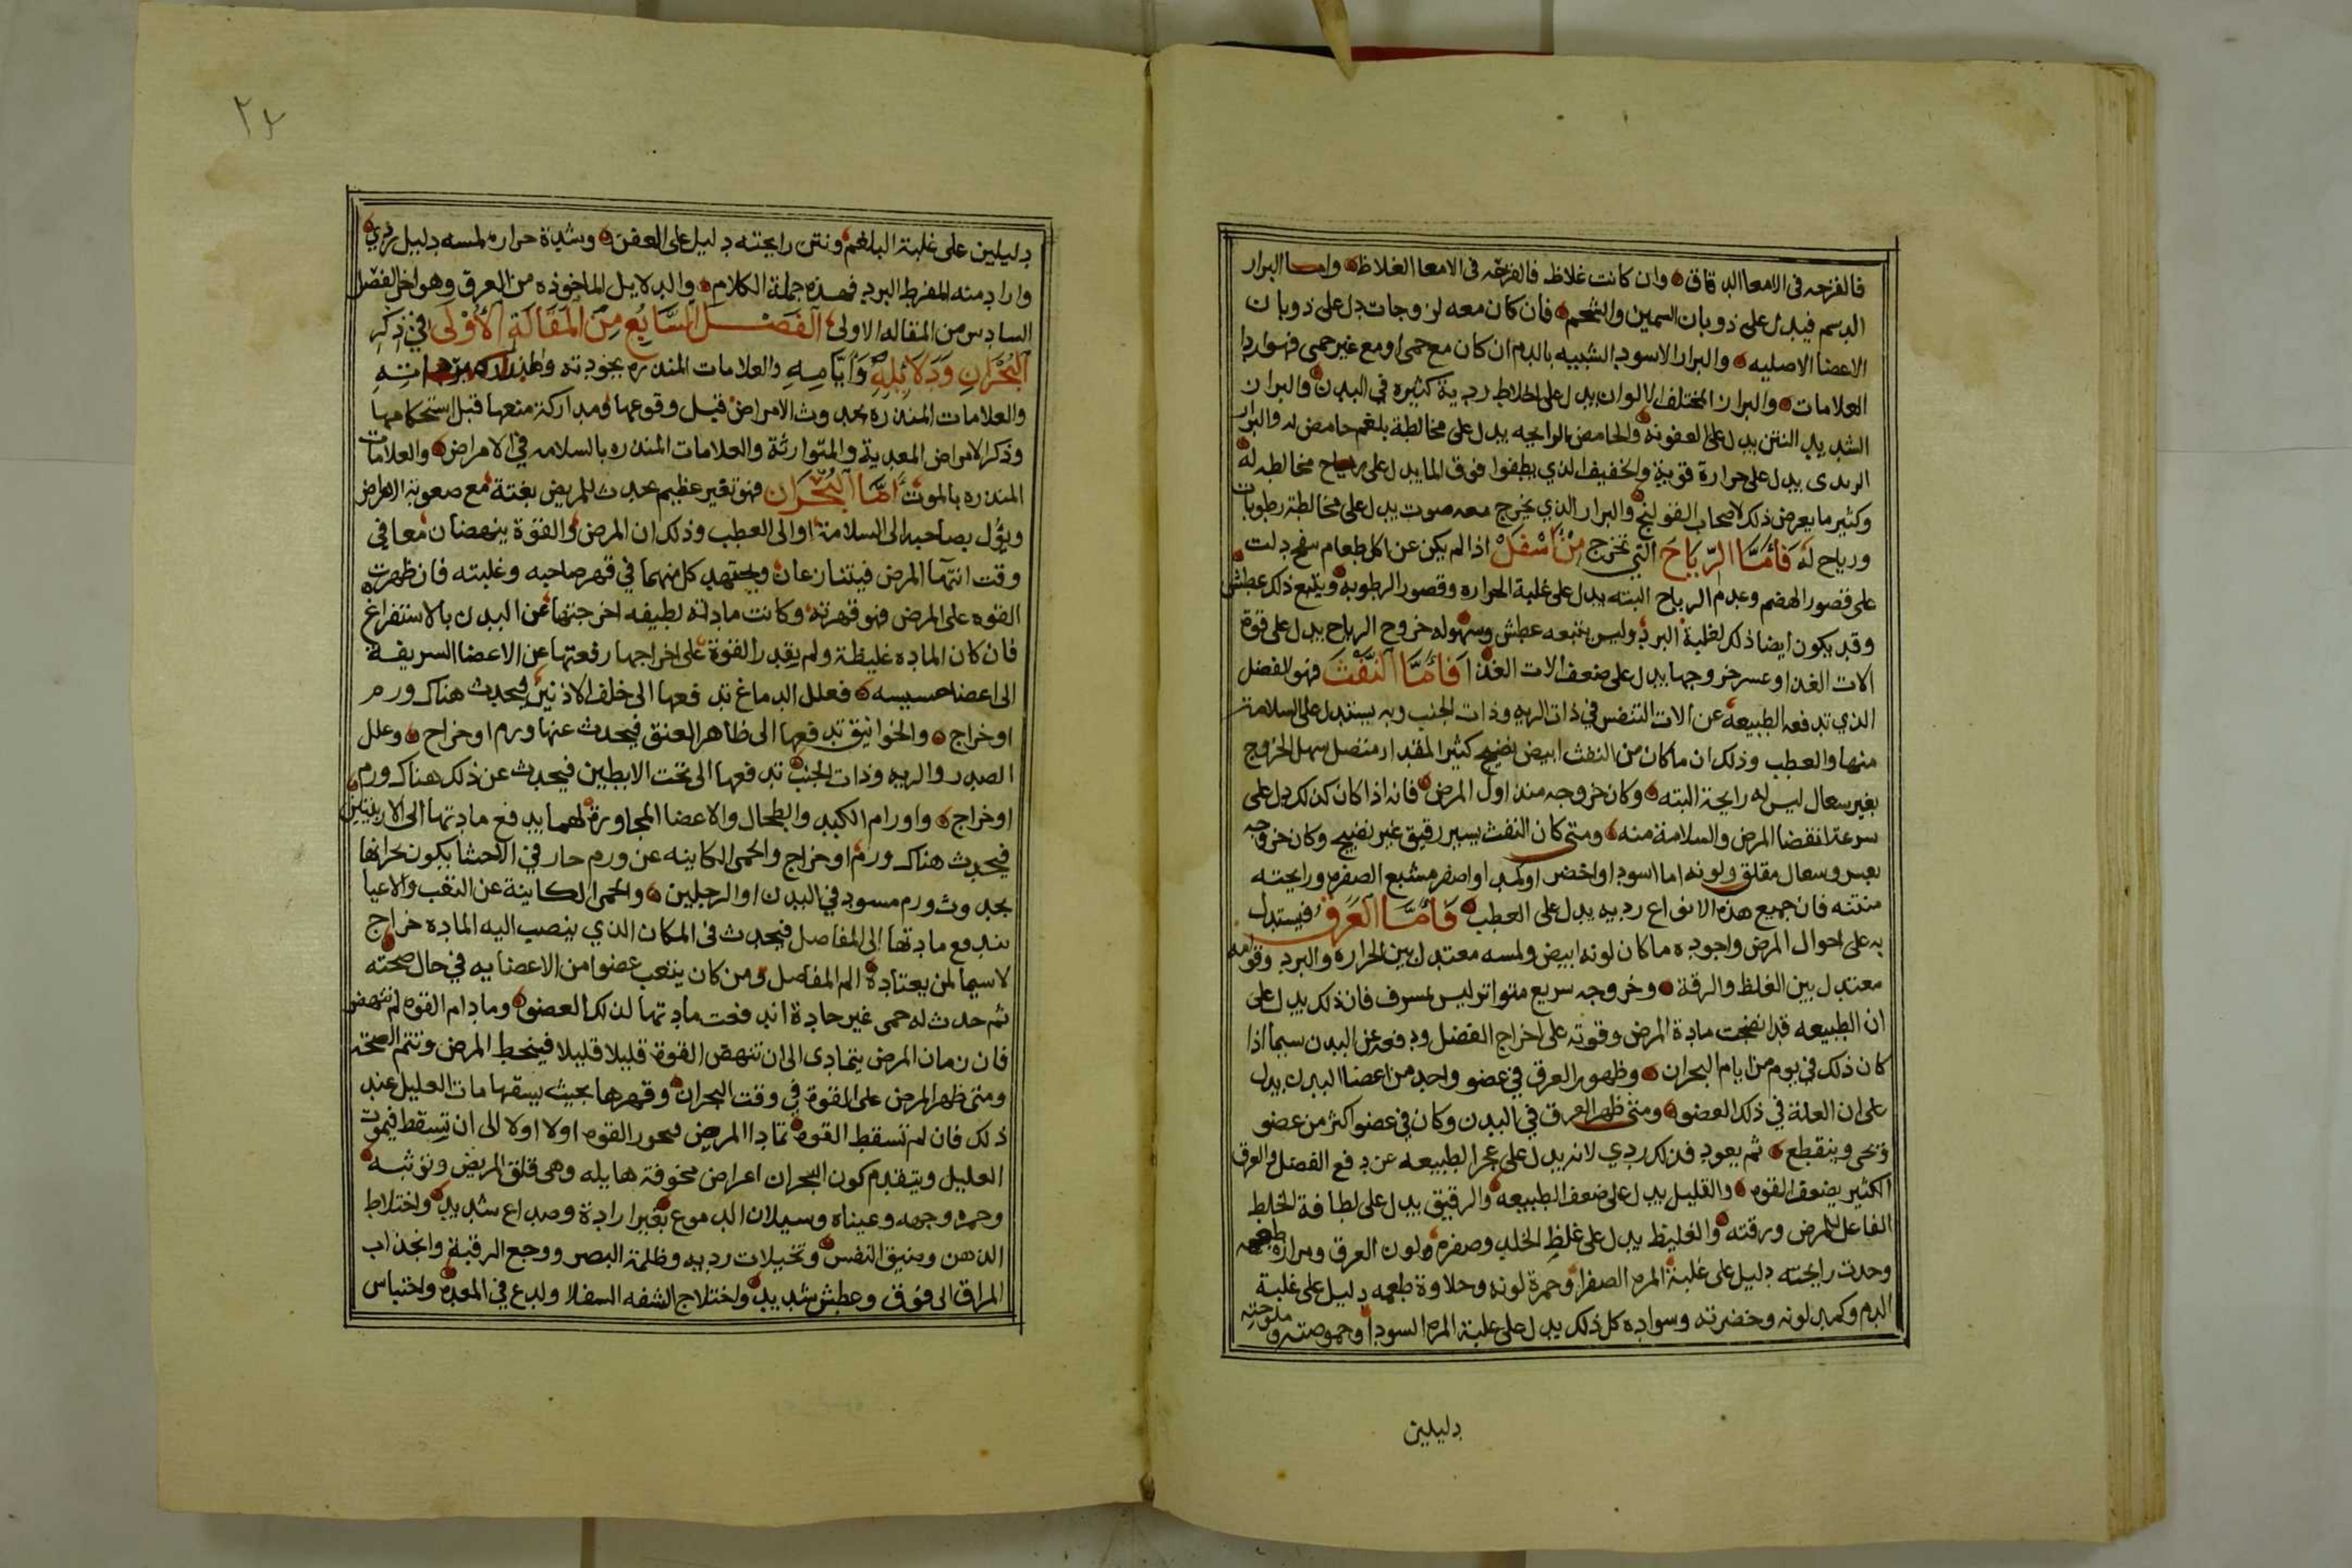 فالقرحه فى الامعا الدقاق وان كانت غلاظ فالقرحه فى الامعا الغلاظ واما البراز
الدسم فيدل على ذوبان السمين والشحم فان كان معه لزوجات دل على ذوبان
الاعضا الاصليه والبراز الاسود الشبيه بالدم ان كان مع حمى او مع غير حمى فهو اردا
العلامات والبراز المختلف الالوان يدل على اخلاط ردية كثيره في البدن والبراز
الشديد النتن يدل على العفونه والحامض الرايحه يدل على مخالطة بلغم حامض له والبراز
الزبدى يدل على حرارة قوية والخفيف الذي يطفوا فوق الما يدل على رياح مخالطه له
وكثير ما يعرض ذلك لاصحاب القولنج والبراز الذي يخرج معه صوت يدل على مخالطة رطوبات
ورياح له فَامَّا الرِّيَاحَ التي تخرج مِنْ اَسْفَلْ اذا لم يكن عن اكل طعام منفخ دلت
على قصور الهضم وعدم الرياح البته يدل على غلبة الحراره وقصور الرطوبه ويتبع ذلك عطش
وقد يكون ايضا ذلك لغلبة البرد وليس يتبعه عطش وسهوله خروج الرياح يدل على قوة
الات الغذا وعسر خروجها يدل على ضعف الات الغذا فَامَّا النَّفْثَ فهو الفضل
الذي تدفعه الطبيعه عن الات التنفس في ذات الريه وذات الجنب وبه يستدل على السلامة
منها والعطب وذلك ان ما كان من النفث ابيض نضيج كثير المقدار متصل سهل الخروج
بغير سعال ليس له رايحة البته وكان خروجه منذ اول المرض فانه اذا كان كذلك دل على
سرعة انقضا المرض والسلامة منه ومتى كان النفث يسير رقيق غير نضيج وكان خروجه
بعسر وسعال مقلق ولونه اما اسود او اخضر او كمد او اصفر مشبع الصفره ورايحته
منتنه فان جميع هذه الانواع رديه يدل على العطب فَامَّا العَرَق فيستدل
به على احوال المرض واجوده ما كان لونه ابيض ولمسه معتدل بين الحراره والبرد وقوامه
معتدل بين الغلظ والرقة وخروجه سريع متواتر ليس بمسرف فان ذلك يدل على
ان الطبيعه قد انضجت مادة المرض وقوته على اخراج الفضل ودفعه عن البدن سيما اذا
كان ذلك في يوم من ايام البحران وظهور العرق في عضو واحد من اعضا البدن يدل
على ان العلة في ذلك العضو ومتى ظهر العرق في البدن وكان في عضو اكثر من عضو
وينقطع ثم يعود فذلك ردي لانه يدل على عجز الطبيعه عن دفع الفضل والعرق
الكثير يضعف القوه والقليل يدل على ضعف الطبيعه والرقيق يدل على لطافة الخلط
الفاعل للمرض ورقته والغليظ يدل على غلظ الخلط وصفره ولون العرق ومرارة طعمه
وحدت رايحته دليل على غلبة المره الصفرا وحمرة لونه وحلاوة طعمه دليل على غلبة
الدم وكمد لونه وخضرته وسواده كل ذلك يدل على غلبة المره السودا وحموضته وملوحته
دليلين
٢٤
دليلين على غلبة البلغم ونتن رايحته دليل على العفن وشدة حراره لمسه دليل ردي
واراد منه المفرط البرد فهذه جملة الكلام والدلايل الماخوذه من العرق وهو اخر الفصل
السادس من المقاله الاولى الفَصْــــلُ السَّابِعُ مِنَ المَقَالَةِ الأُوْلَى في ذكر
البُحْرَانِ وَدَلَائِلِهِ وَأَيَّامِهِ والعلامات المنذره بجودته
والعلامات المنذره بحدوث الامراض قبل وقوعها ومداركة منعها قبل استحكامها
وذكر الامراض المعدية والمتوارثة والعلامات المنذره بالسلامه في الامراض والعلامات
المنذره بالموت اَمَّا البُحْرَان فهو تغير عظيم يحدث للمريض بغتة مع صعوبة الامراض
ويؤل بصاحبه الى السلامة او الى العطب وذلك ان المرض والقوة ينهضان معا في
وقت انتها المرض فيتنازعان ويجتهد كل منهما في قهر صاحبه وغلبته فان ظهرت
القوه على المرض فهو قهرته وكانت مادته لطيفه اخرجتها عن البدن بالاستفراغ
فان كان الماده غليظة ولم يقدر القوة على اخراجها رفعتها عن الاعضا الشريفة
الى اعضا خسيسه فعلل الدماغ تدفعها الى خلف الاذنين فيحدث هناك ورم
او خراج والخوانيق تدفعها الى ظاهر العنق فيحدث عنها ورم او خراج وعلل
الصدر والريه وذات الجنب تدفعها الى تحت الابطين فيحدث عن ذلك هناك ورم
او خراج واورام الكبد والطحال والاعضا المجاورة لهما يدفع مادتها الى الاربيتين
فيحدث هناك ورم او خراج والحمى الكاينه عن ورم حار في الاحشا يكون بحرانها
بحدوث ورم مسود في البدن او الرجلين والحمى الكاينة عن التعب والاعيا
يندفع مادتها الى المفاصل فيحدث في المكان الذي ينصب اليه الماده خراج
لاسيما لمن يعتاده الم المفاصل ومن كان يتعب عضوا من الاعضا به في حال صحته
ثم حدث له حمى غير حادة اندفعت مادتها لذلك العضو وما دام القوه لم تنهض
فان زمان المرض يتمادى الى ان تنهض القوة قليلا قليلا فينحط المرض وتتم الصحة
ومتى ظهر المرض على القوة في وقت البحران وقهرها بحيث يسقها مات العليل عند
ذلك فان لم تسقط القوه تمادا المرض القوه اولا اولا الى ان تسقط فيموت
العليل ويتقدم كون البحران اعراض مخوفة هايله وهي قلق المريض وتوثبه
وحمره وجهه وعيناه وسيلان الدموع بغير ارادة وصداع شديد واختلاط
الذهن وضيق النفس وتخيلات رديه وظلمة البصر ووجع الرقبة وانجذاب
المراق الى فوق وعطش شديد واختلاج الشفه السفلا ولدع في المعده واحتباس